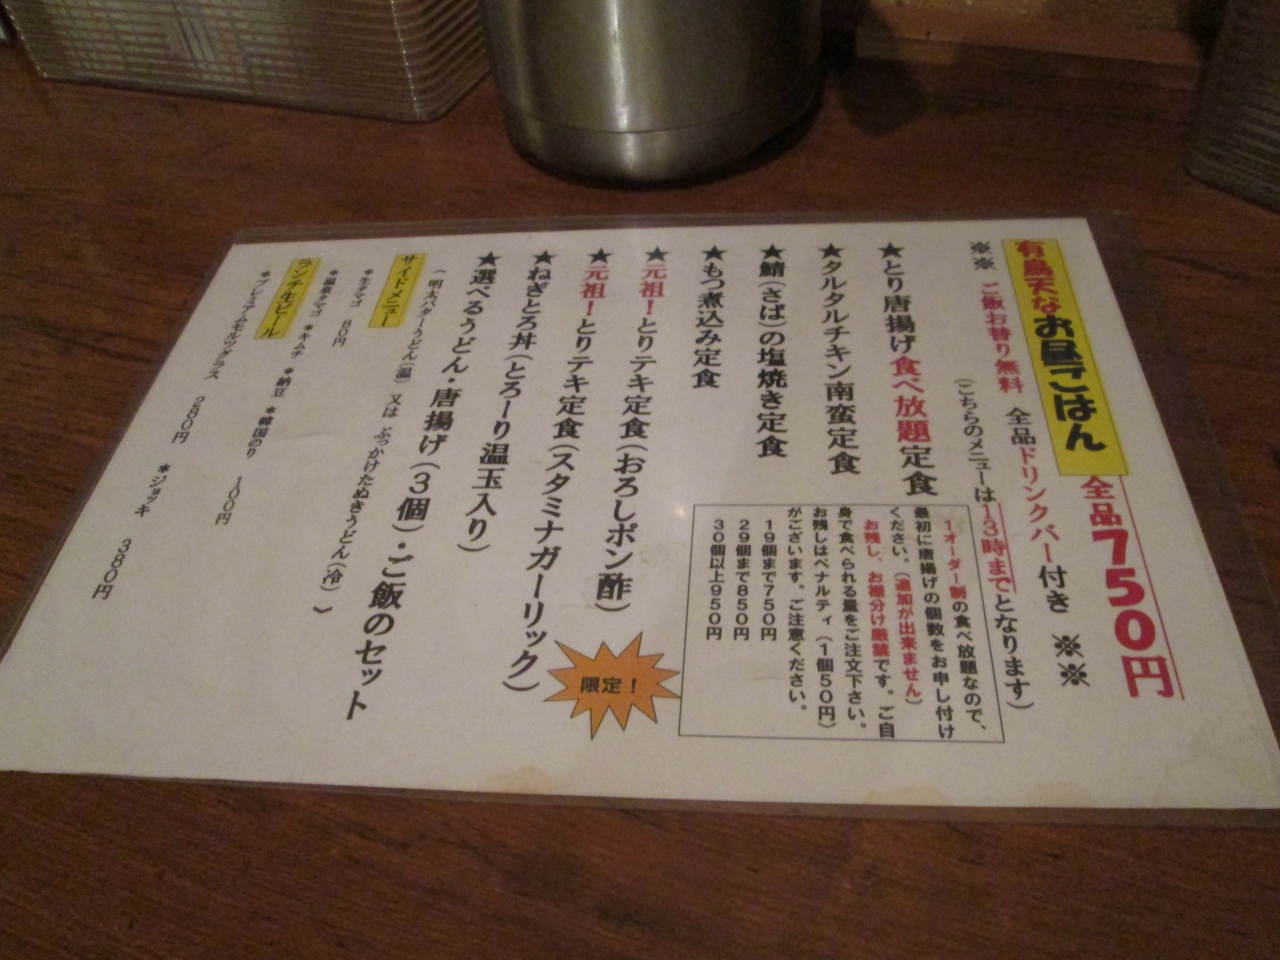 有鳥天なお昼ごはん 全品750円
※※ ご飯お替り無料 全品ドリンクバー付き ※※
(こちらのメニューは13時までとなります)
★とり唐揚げ食べ放題定食
1オーダー制の食べ放題なので、
最初に唐揚げの個数をお申し付け
ください。(追加が出来ません)
お残し、お裾分け厳禁です。ご自
身で食べられる量をご注文下さい。
お残しはペナルティ(1個50円)
がございます。ご注意ください。
19個まで750円
29個まで850円
30個以上950円
★タルタルチキン南蛮定食
★鯖(さば)の塩焼き定食
★もつ煮込み定食
★元祖!とりテキ定食(おろしポン酢)
★元祖!とりテキ定食(スタミナガーリック)
限定!
★ねぎとろ丼(とろーり温玉入り)
★選べるうどん・唐揚げ(3個)・ご飯のセット
(明太バターうどん(温) 又は ぶっかけたぬきうどん(冷))
サイドメニュー
*生タマゴ 80円
*温泉タマゴ *キムチ *納豆 *韓国のり 100円
ランチ生ビール
*プレミアムモルツグラス 280円 *ジョッキ 380円